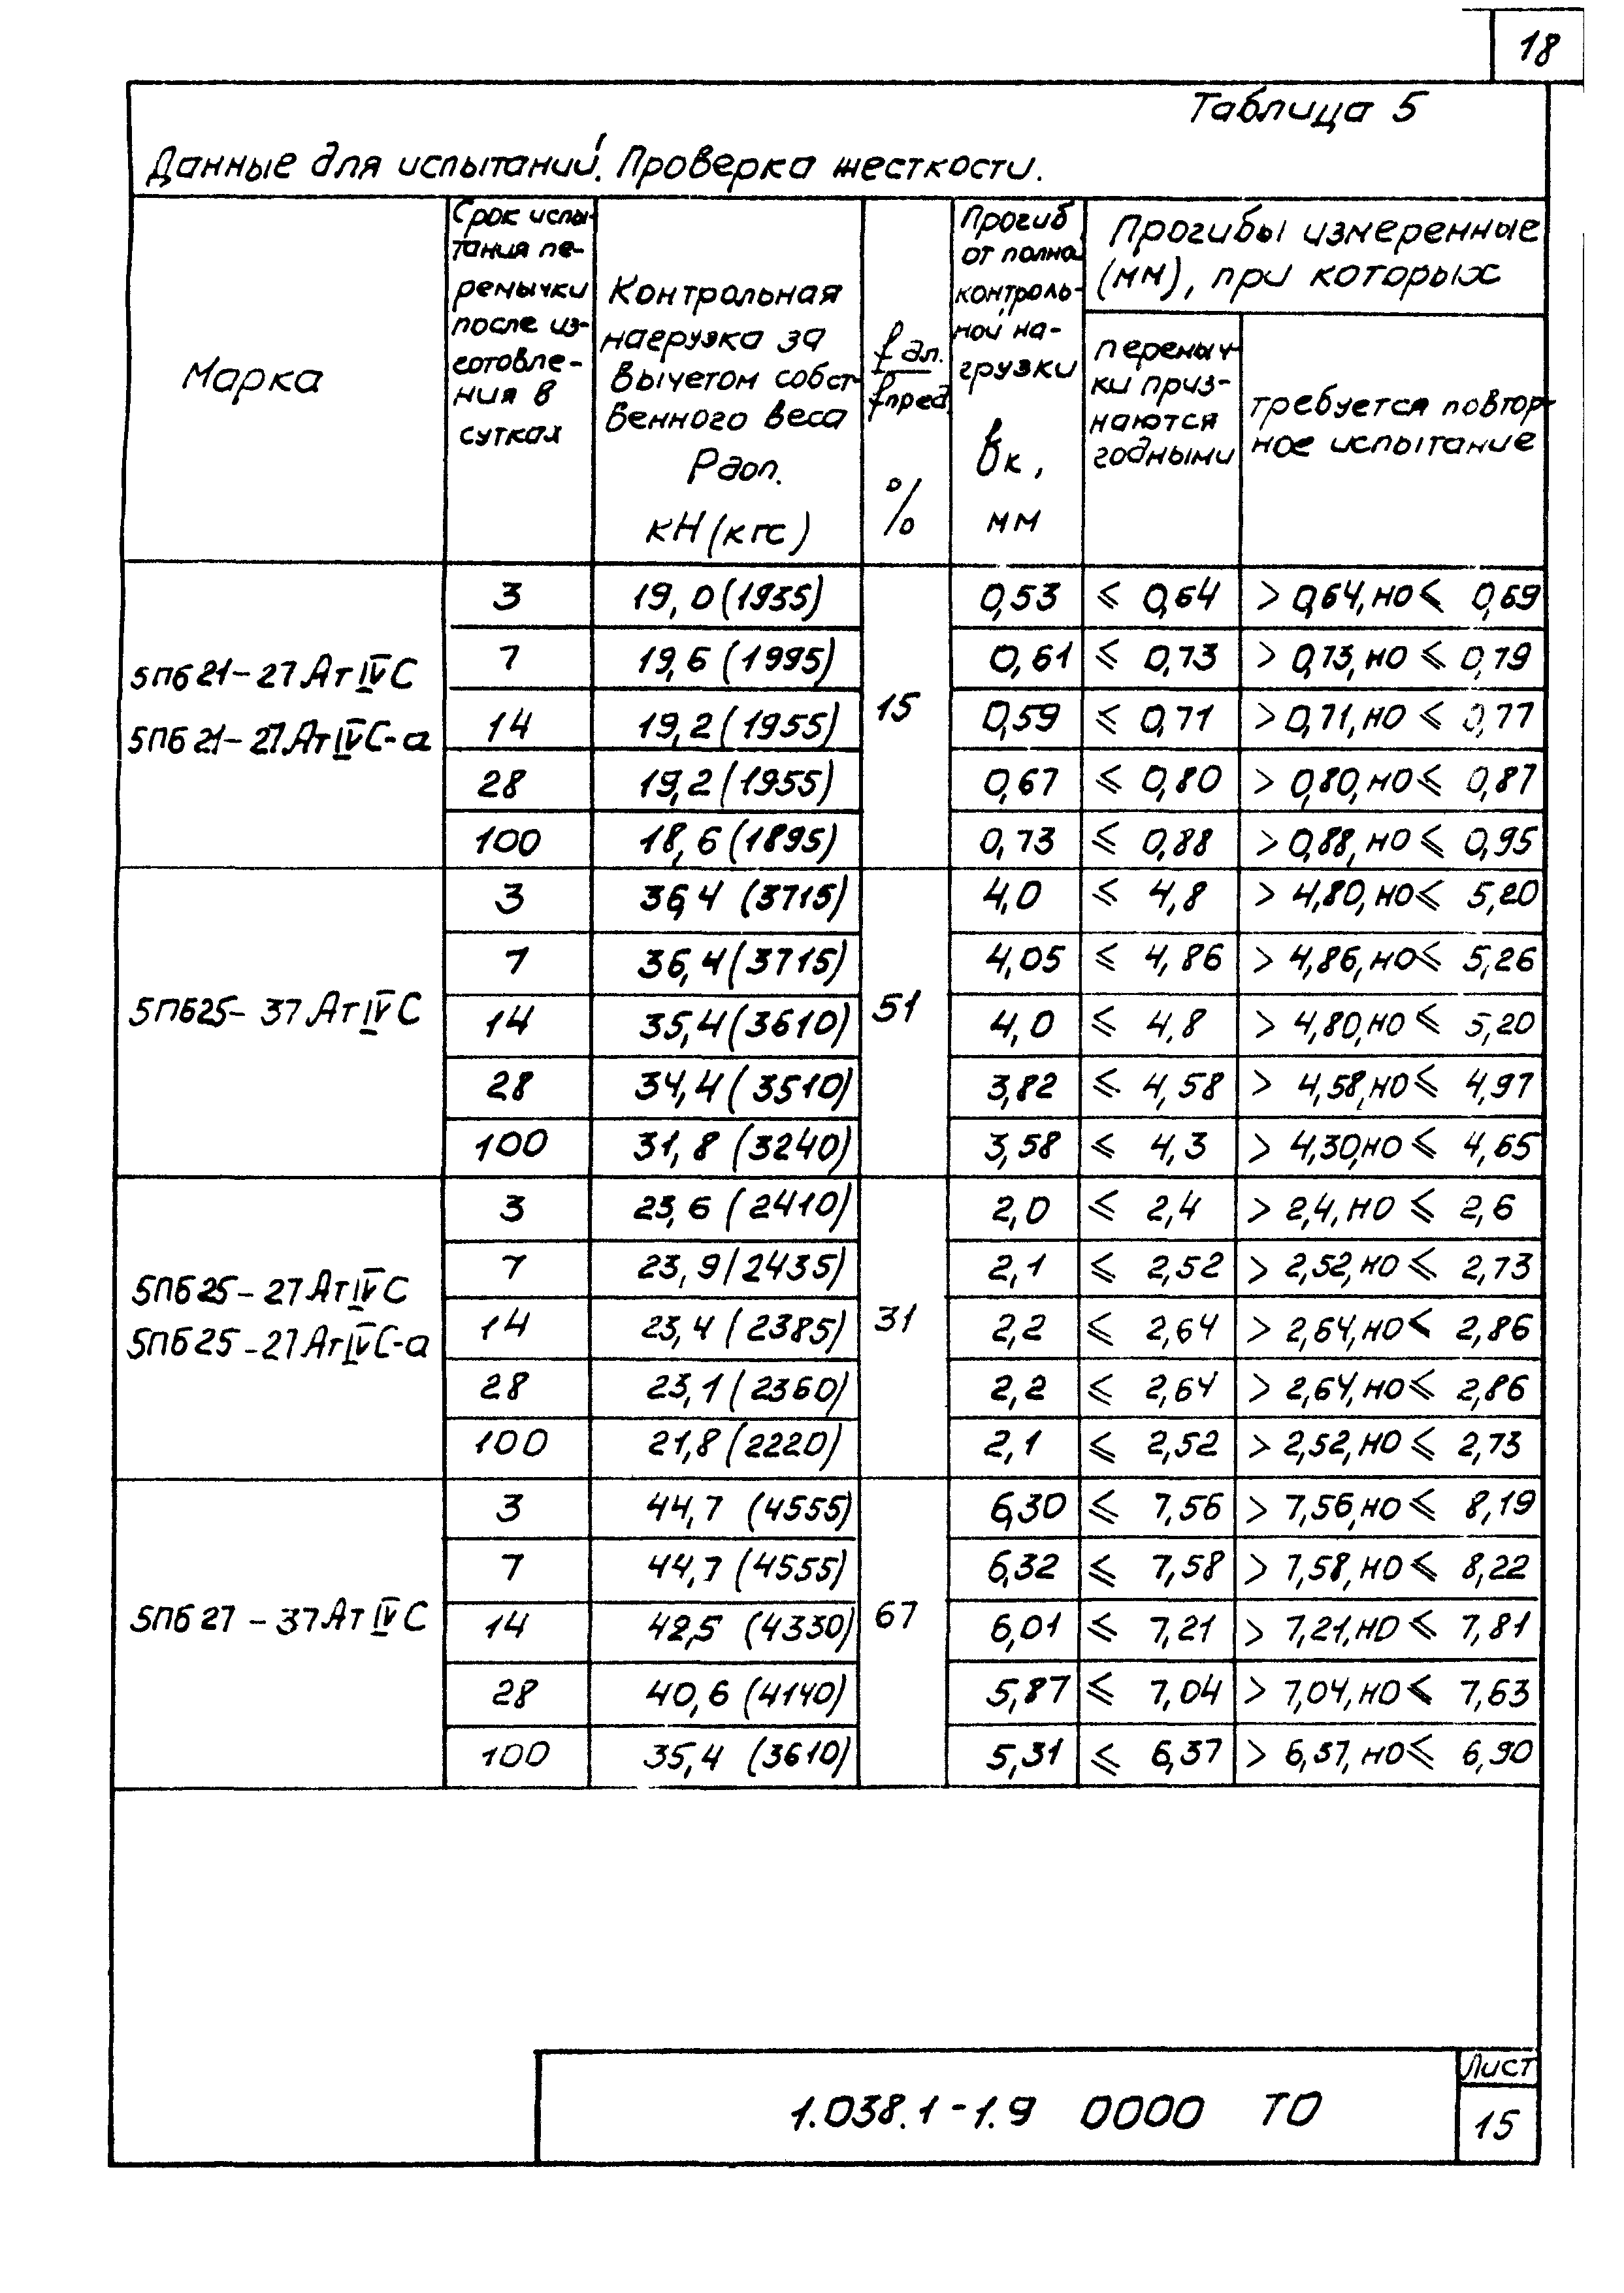 18
Таблица 5
Данные для испытаний. Проверка жесткости.
Марка
Срок испы-
тания пе-
ремычки
после из-
готовле-
ния в
сутках
Контрольная
нагрузка за
вычетом собст-
венного веса
Рдоп.
кН (кгс)
fдл.
fпред
%
Прогиб
от полной
контроль-
ной на-
грузки
fк,
мм
Прогибы измеренные
(мм), при которых
перемыч-
ки приз-
наются
годными
требуется повтор-
ное испытание
5ПБ21-27АтIVС
5ПБ21-27АтIVС-а
15
3 19,0(1935) 0,53 ⩽ 0,64 > 0,64, но ⩽ 0,69
7 19,6(1995) 0,61 ⩽ 0,73 > 0,73, но ⩽ 0,79
14 19,2(1955) 0,59 ⩽ 0,71 > 0,71, но ⩽ 0,77
28 19,2(1955) 0,67 ⩽ 0,80 > 0,80, но ⩽ 0,87
100 18,6(1895) 0,73 ⩽ 0,88 > 0,88, но ⩽ 0,95
5ПБ25-37АтIVС
51
3 36,4 (3715) 4,0 ⩽ 4,8 > 4,80, но ⩽ 5,20
7 36,4(3715) 4,05 ⩽ 4,86 > 4,86, но ⩽ 5,26
14 35,4(3610) 4,0 ⩽ 4,8 > 4,80, но ⩽ 5,20
28 34,4(3510) 3,82 ⩽ 4,58 > 4,58, но ⩽ 4,97
100 31,8 (3240) 3,58 ⩽ 4,3 > 4,30, но ⩽ 4,65
5ПБ25-27АтIVС
5ПБ25-27АтIVС-а
31
3 23,6 (2410) 2,0 ⩽ 2,4 > 2,4, но ⩽ 2,6
7 23,9(2435) 2,1 ⩽ 2,52 > 2,52, но ⩽ 2,73
14 23,4 (2385) 2,2 ⩽ 2,64 > 2,64, но ⩽ 2,86
28 23,1(2360) 2,2 ⩽ 2,64 > 2,64, но ⩽ 2,86
100 21,8(2220) 2,1 ⩽ 2,52 > 2,52, но ⩽ 2,73
5ПБ27-37АтIVС
67
3 44,7 (4555) 6,30 ⩽ 7,56 > 7,56, но ⩽ 8,19
7 44,7 (4555) 6,32 ⩽ 7,58 > 7,58, но ⩽ 8,22
14 42,5 (4330) 6,01 ⩽ 7,21 > 7,21, но ⩽ 7,81
28 40,6 (4140) 5,87 ⩽ 7,04 > 7,04, но ⩽ 7,63
100 35,4 (3610) 5,31 ⩽ 6,37 > 6,37, но ⩽ 6,90
1.038.1-1.9 0000 ТО
Лист
15